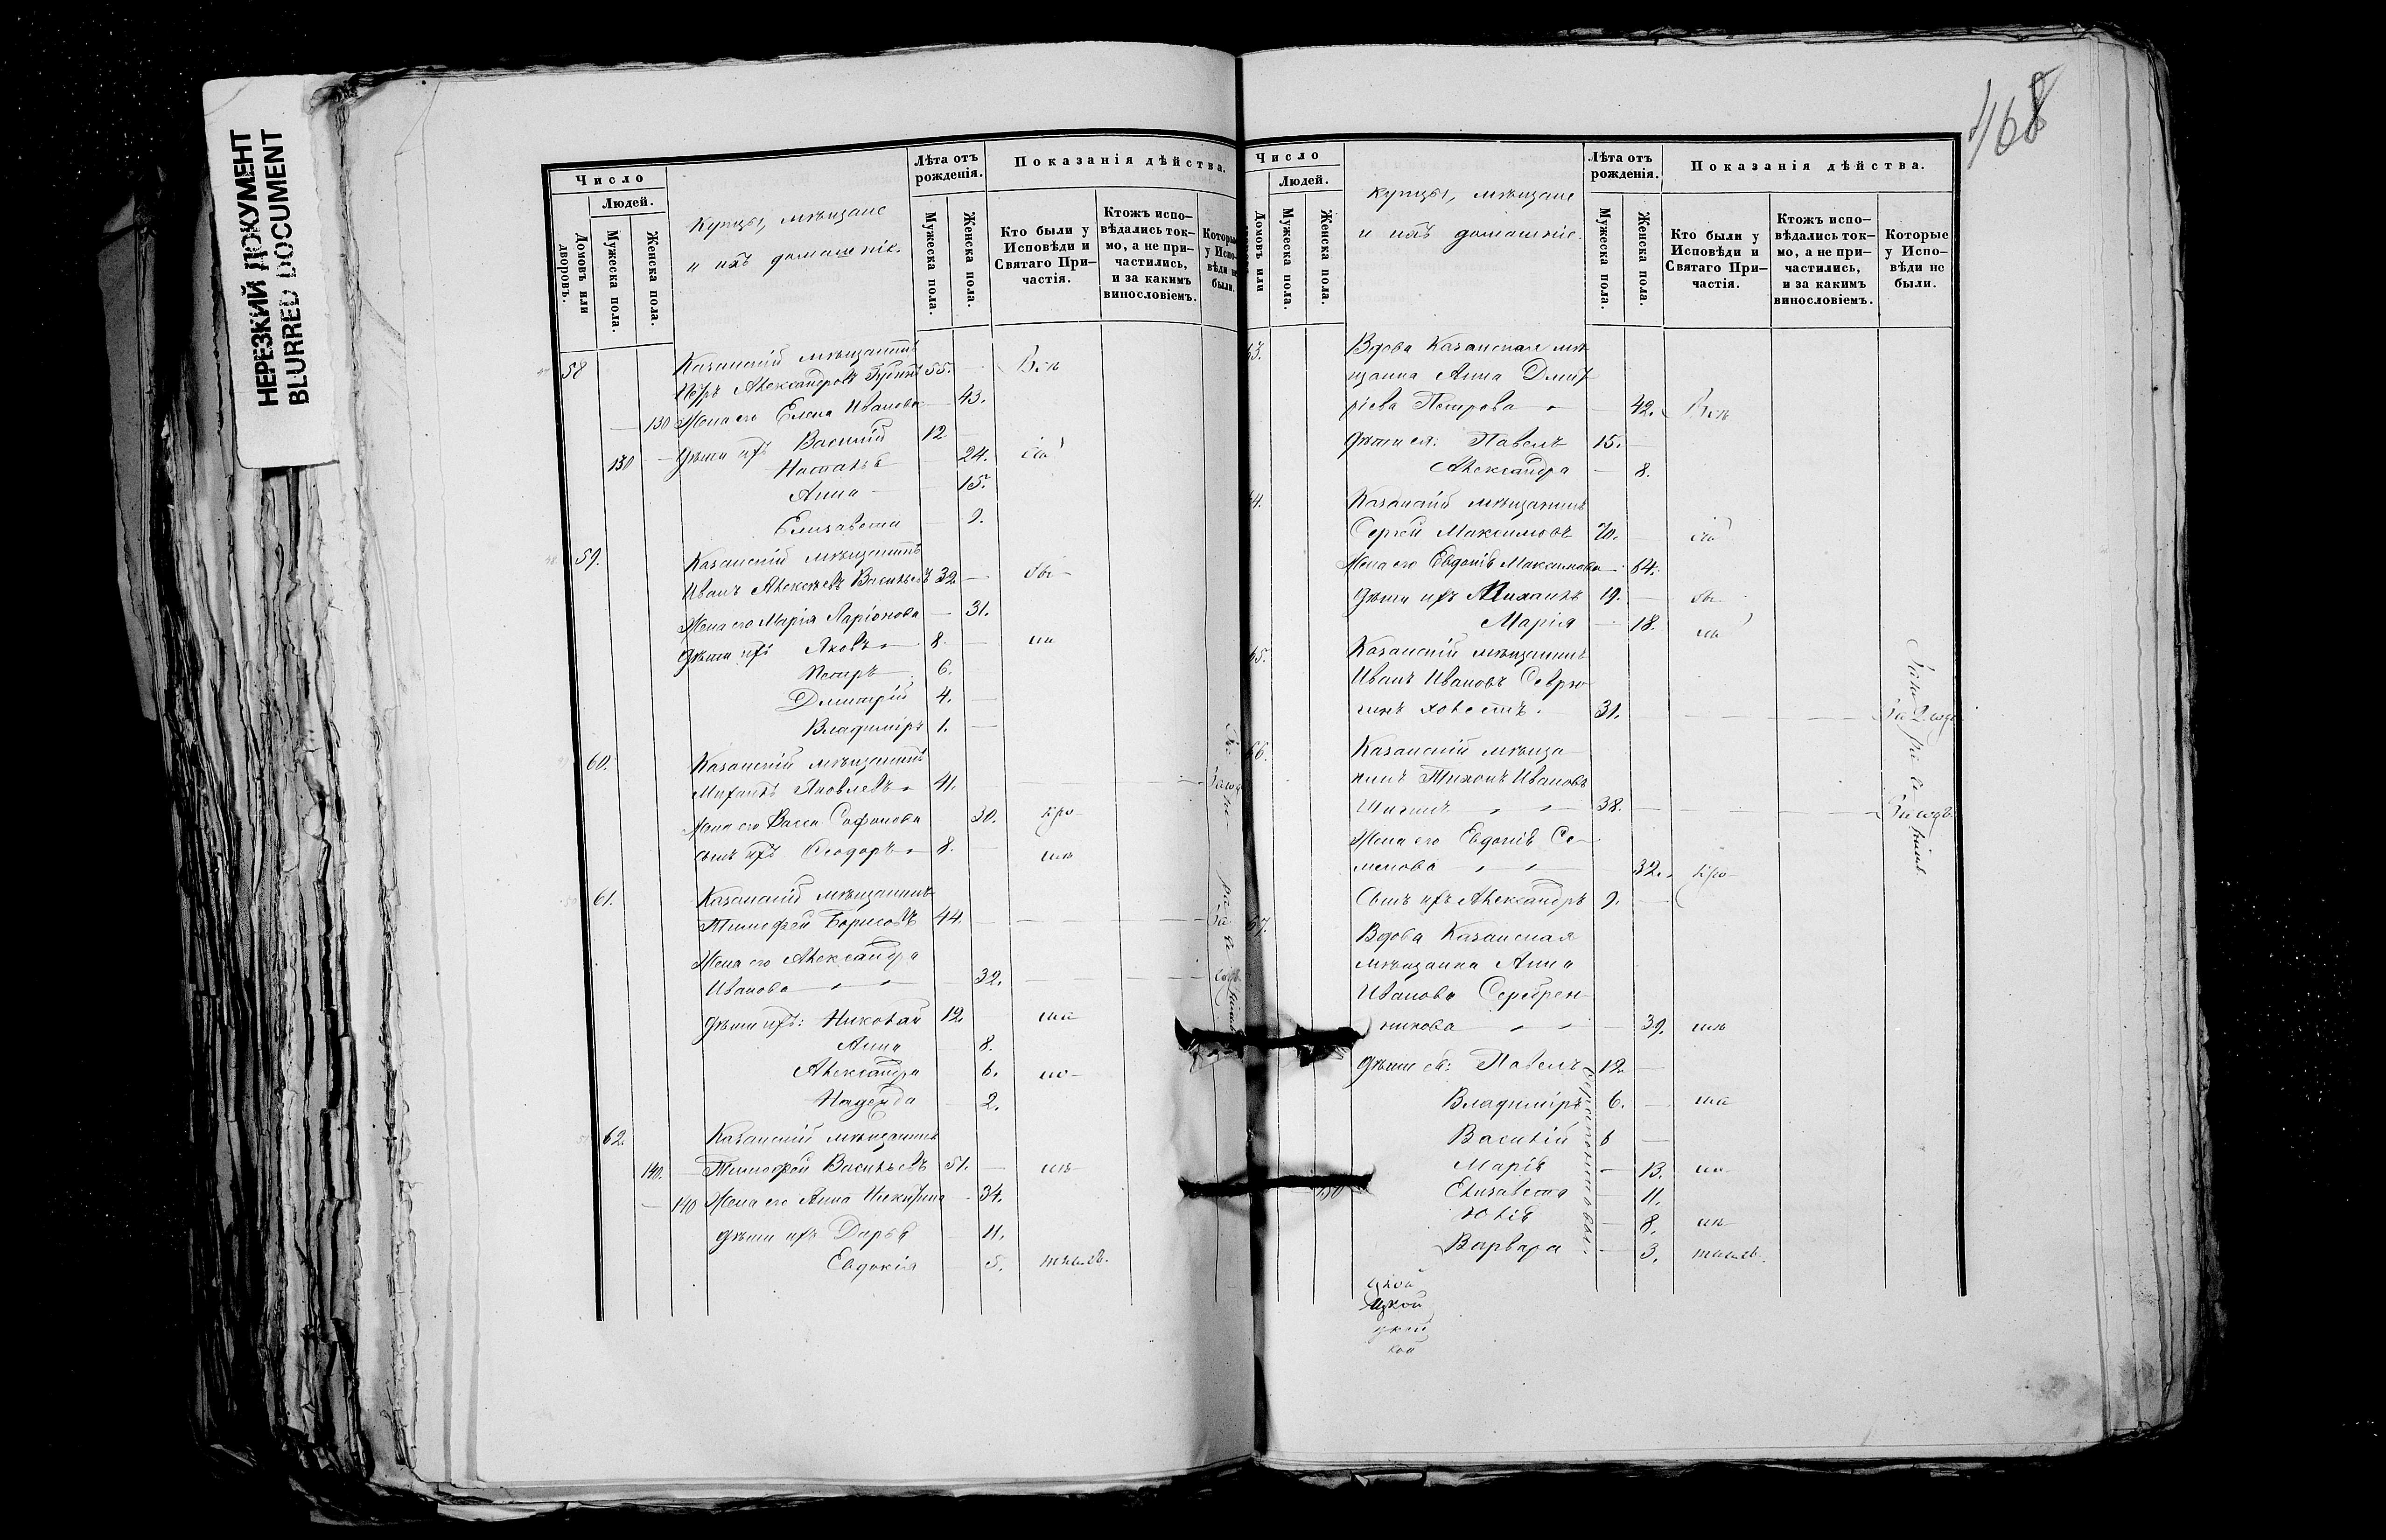 НЕРЕЗКИЙ ДОКУМЕНТ
BLURRED DOCUMENT
468
Число
Людей.
Домовъ или дворовъ.
Мужеска пола.
Женска пола.
Купцы, мѣщане
и ихъ домашніе.
Лѣта отъ рожденія.
Мужеска пола.
Женска пола.
Показанія дѣйства.
Кто были у Исповѣди и Святаго При-частія.
Ктожъ испо-вѣдались ток-мо, а не при-частились, и за какимъ винословіемъ.
Которые у Испо-вѣди не были.
58 Казанскій мѣщанинъ
Петръ Александровъ 55. Всѣ
130 Жена его Елена Иванова 43.
130 дѣти ихъ Василій 12
Наталья 24.
Анна 15.
Елизавета 9.
59. Казанскій мѣщанинъ
Иванъ Алексѣевъ Васильевъ 32 бы-
Жена его Марія Ларіонова 31.
дѣти ихъ Яковъ 8. ли
Петръ 6.
Димитрій 4.
Владиміръ 1.
60. Казанскій мѣщанинъ
Михаилъ Яковлевъ 41.
Жена его Васса Сафонова 30. кро-
сынъ ихъ Ѳеодоръ 8. мѣ
61. Казанскій мѣщанинъ
Тимофей Борисовъ 44.
Жена его Александра
Иванова 32.
дѣти ихъ: Николай 12.
Анна 8.
Александра 6.
Надежда 2.
62. Казанскій мѣщанинъ
140. Тимофей Васильевъ 51.
140 Жена его Анна Никитина 34.
дѣти ихъ Дарья 11.
Евдокія 5.
Число
Людей.
Домовъ или
Мужеска пола.
Женска пола.
Купцы, мѣщане
и ихъ домашніе.
Лѣта отъ рожденія.
Мужеска пола.
Женска пола.
Показанія дѣйства.
Кто были у Исповѣди и Святаго При-частія.
Ктожъ испо-вѣдались ток-мо, а не при-частились, и за какимъ винословіемъ.
Которые у Испо-вѣди не были.
63. Вдова Казанская мѣ-
щанка Анна Дмит-
ріева Петрова 42. Всѣ
дѣти ея: Павелъ 15.
Александра 8.
64. Казанскій мѣщанинъ
Сергей Максимовъ 70.
Жена его Евдокія Максимова 64.
дѣти ихъ Михаилъ 19. бы-
Марія 18. ли
65. Казанскій мѣщанинъ
Иванъ Ивановъ Севрю-
гинъ холостъ. 31.
66. Казанскій мѣща-
нинъ Тихонъ Ивановъ
38.
Жена его Евдокія Се-
менова 32. кро-
Сынъ ихъ Александръ 9.
67. Вдова Казанская
мѣщанка Анна
Иванова Серебрен-
никова 39. мѣ
дѣти ея: Павелъ 12.
Владиміръ 6.
Василій 6
Марія 13.
Елизавета 11.
Юлія 8.
Варвара 3.